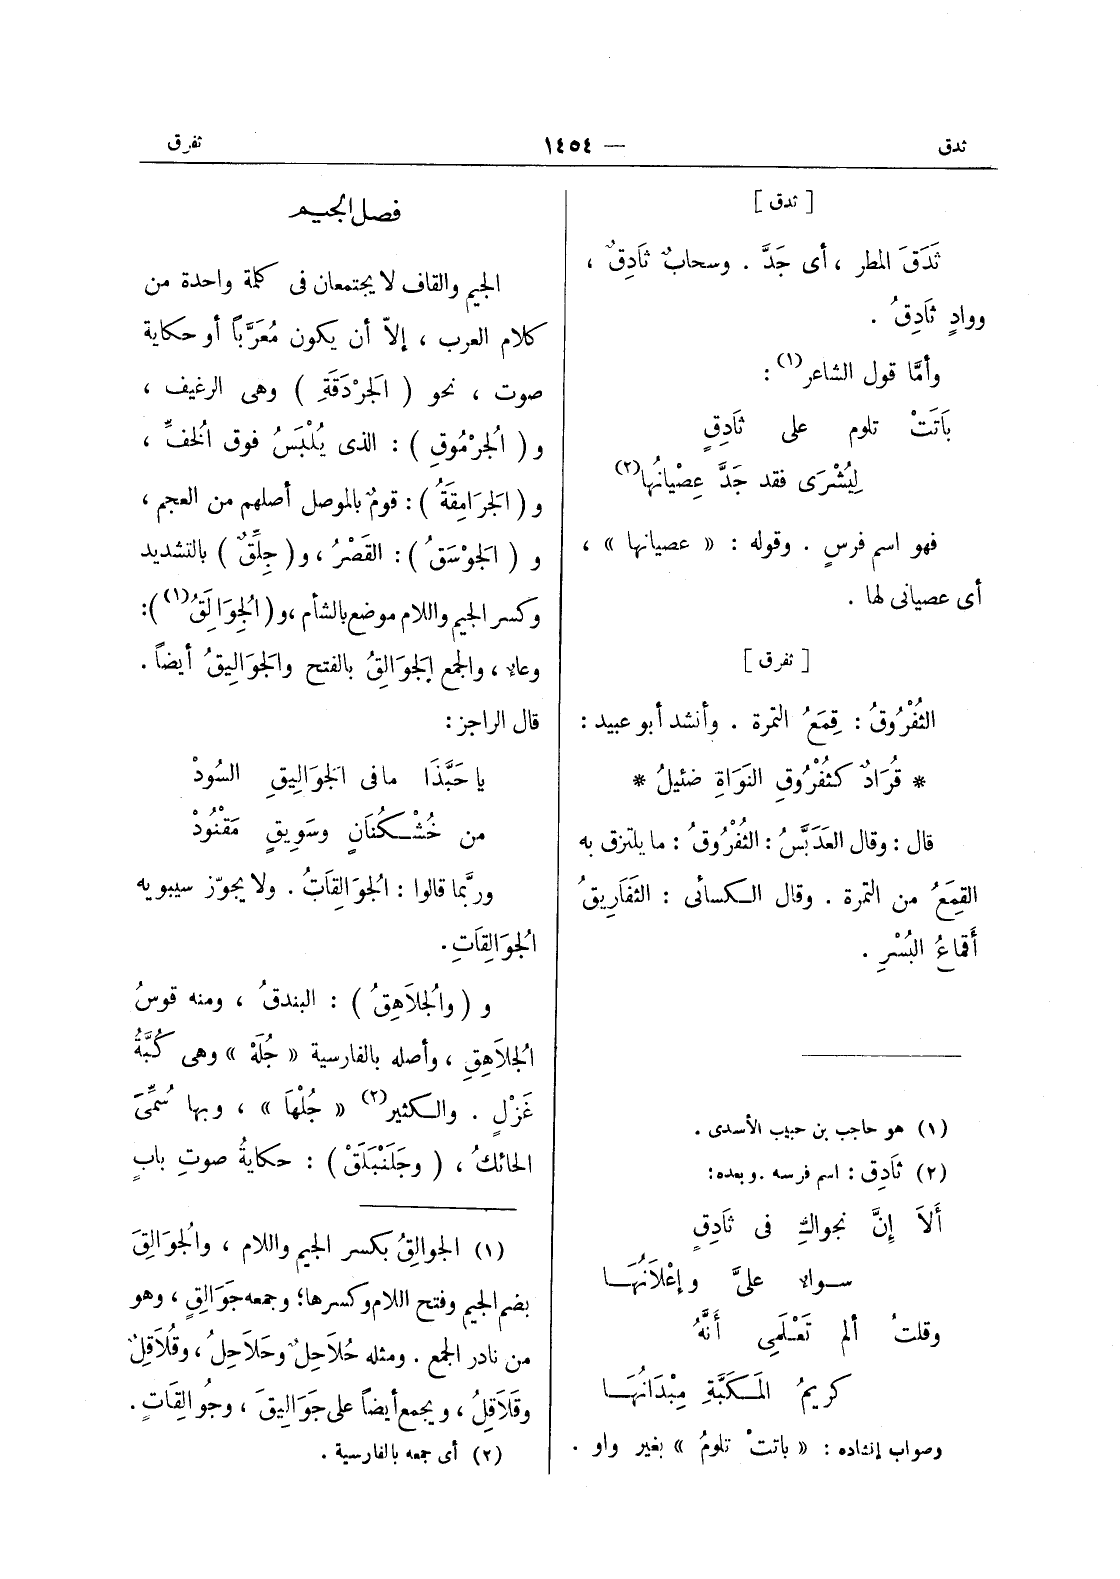 ثدق
— ١٤٥٤
ثفرق
[ ثدق ]
ثَدَقَ المطر ، أى جَدَّ . وسحابٌ ثَادِقٌ ،
ووادٍ ثَادِقٌ .
وأمَّا قول الشاعر(١) :
بَاتَتْ تلوم على ثَادِقٍ
لِيُشْرَى فقد جَدَّ عِصْيانُها(٢)
فهو اسم فرسٍ . وقوله : « عصيانها » ،
أى عصيانى لها .
[ ثفرق ]
الثُفْرُوقُ : قِمَعُ التمرة . وأنشد أبو عبيد :
* قُرَادٌ كَثُفْرُوقِ النَوَاةِ ضئيلُ *
قال : وقال العَدَبَّسُ : الثُفْرُوقُ : ما يلتزق به
القِمَعُ من التمرة . وقال الكسائى : الثَفَارِيقُ
أَقماعُ البُسْرِ .
(١) هو حاجب بن حبيب الأسدى .
(٢) ثَادِق : اسم فرسه . وبعده :
أَلاَ إِنَّ نجواكِ فى ثَادِقٍ
سواء علىَّ وإِعْلَانُهَا
وقلتُ ألم تَعْلَمِى أَنَّهُ
كريمُ المَكَبَّةِ مِبْدَانُهَا
وصواب إنشاده : « باتتْ تلومُ » بغير واو .
فصل الجيم
الجيم والقاف لا يجتمعان فى كلمة واحدة من
كلام العرب ، إلاّ أن يكون مُعَرَّباً أو حكاية
صوت ، نحو ( الجَرْدَقَةِ ) وهى الرغيف ،
و ( الجُرْمُوقِ ) : الذى يُلْبَسُ فوق الخفِّ ،
و ( الجَرَامِقَةُ ) : قومٌ بالموصل أصلهم من العجم ،
و ( الجَوْسَقُ ) : القَصْرُ ، و ( جِلِّقٌ ) بالتشديد
وكسر الجيم واللام موضع بالشأم ، و ( الجُوَالِقُ(١) ) :
وعاء ، والجمع الجَوَالِقُ بالفتح والجَوَالِيقُ أيضاً .
قال الراجز :
يا حَبَّذَا ما فى الجَوَالِيقِ السُودْ
من خُشْكُنَانٍ وسَوِيقٍ مَقْنُودْ
وربَّما قالوا : الجُوَالِقَاتُ . ولا يجوّز سيبويه
الجُوَالِقَاتِ .
و ( والجُلاَهِقُ ) : البندقُ ، ومنه قوسُ
الجُلاَهِقِ ، وأصله بالفارسية « جُلَهْ » وهى كُبَّةُ
غَزْلٍ . والكثير(٢) « جُلْهَا » ، وبها سُمِّىَ
الحائكُ ، ( وجَلَنْبَلَقْ ) : حكايةُ صوتِ بابٍ
(١) الجوالِقُ بكسر الجيم واللام ، والجُوَالِقَ
بضم الجيم وفتح اللام وكسرها ؛ وجمعه جَوَالِقٍ ، وهو
من نادر الجمع . ومثله حُلاَحِلٌ وحَلاَحِلُ ، وقُلاَقِلٌ
وقَلاَقِلُ ، ويجمع أيضاً على جَوَالِيقَ ، وجُوالِقَاتٍ .
(٢) أى جمعه بالفارسية .